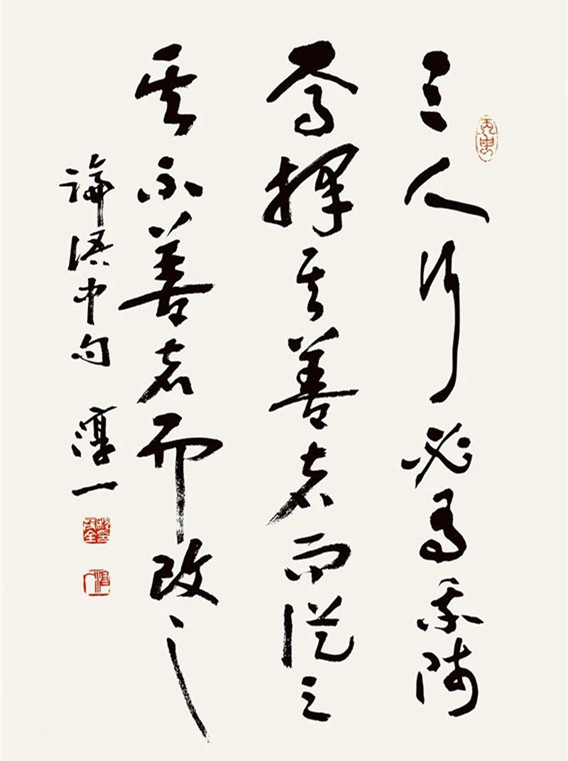 三人行必有我師
焉擇其善者而從之
其不善者而改之
論語中句 淳一
丙申